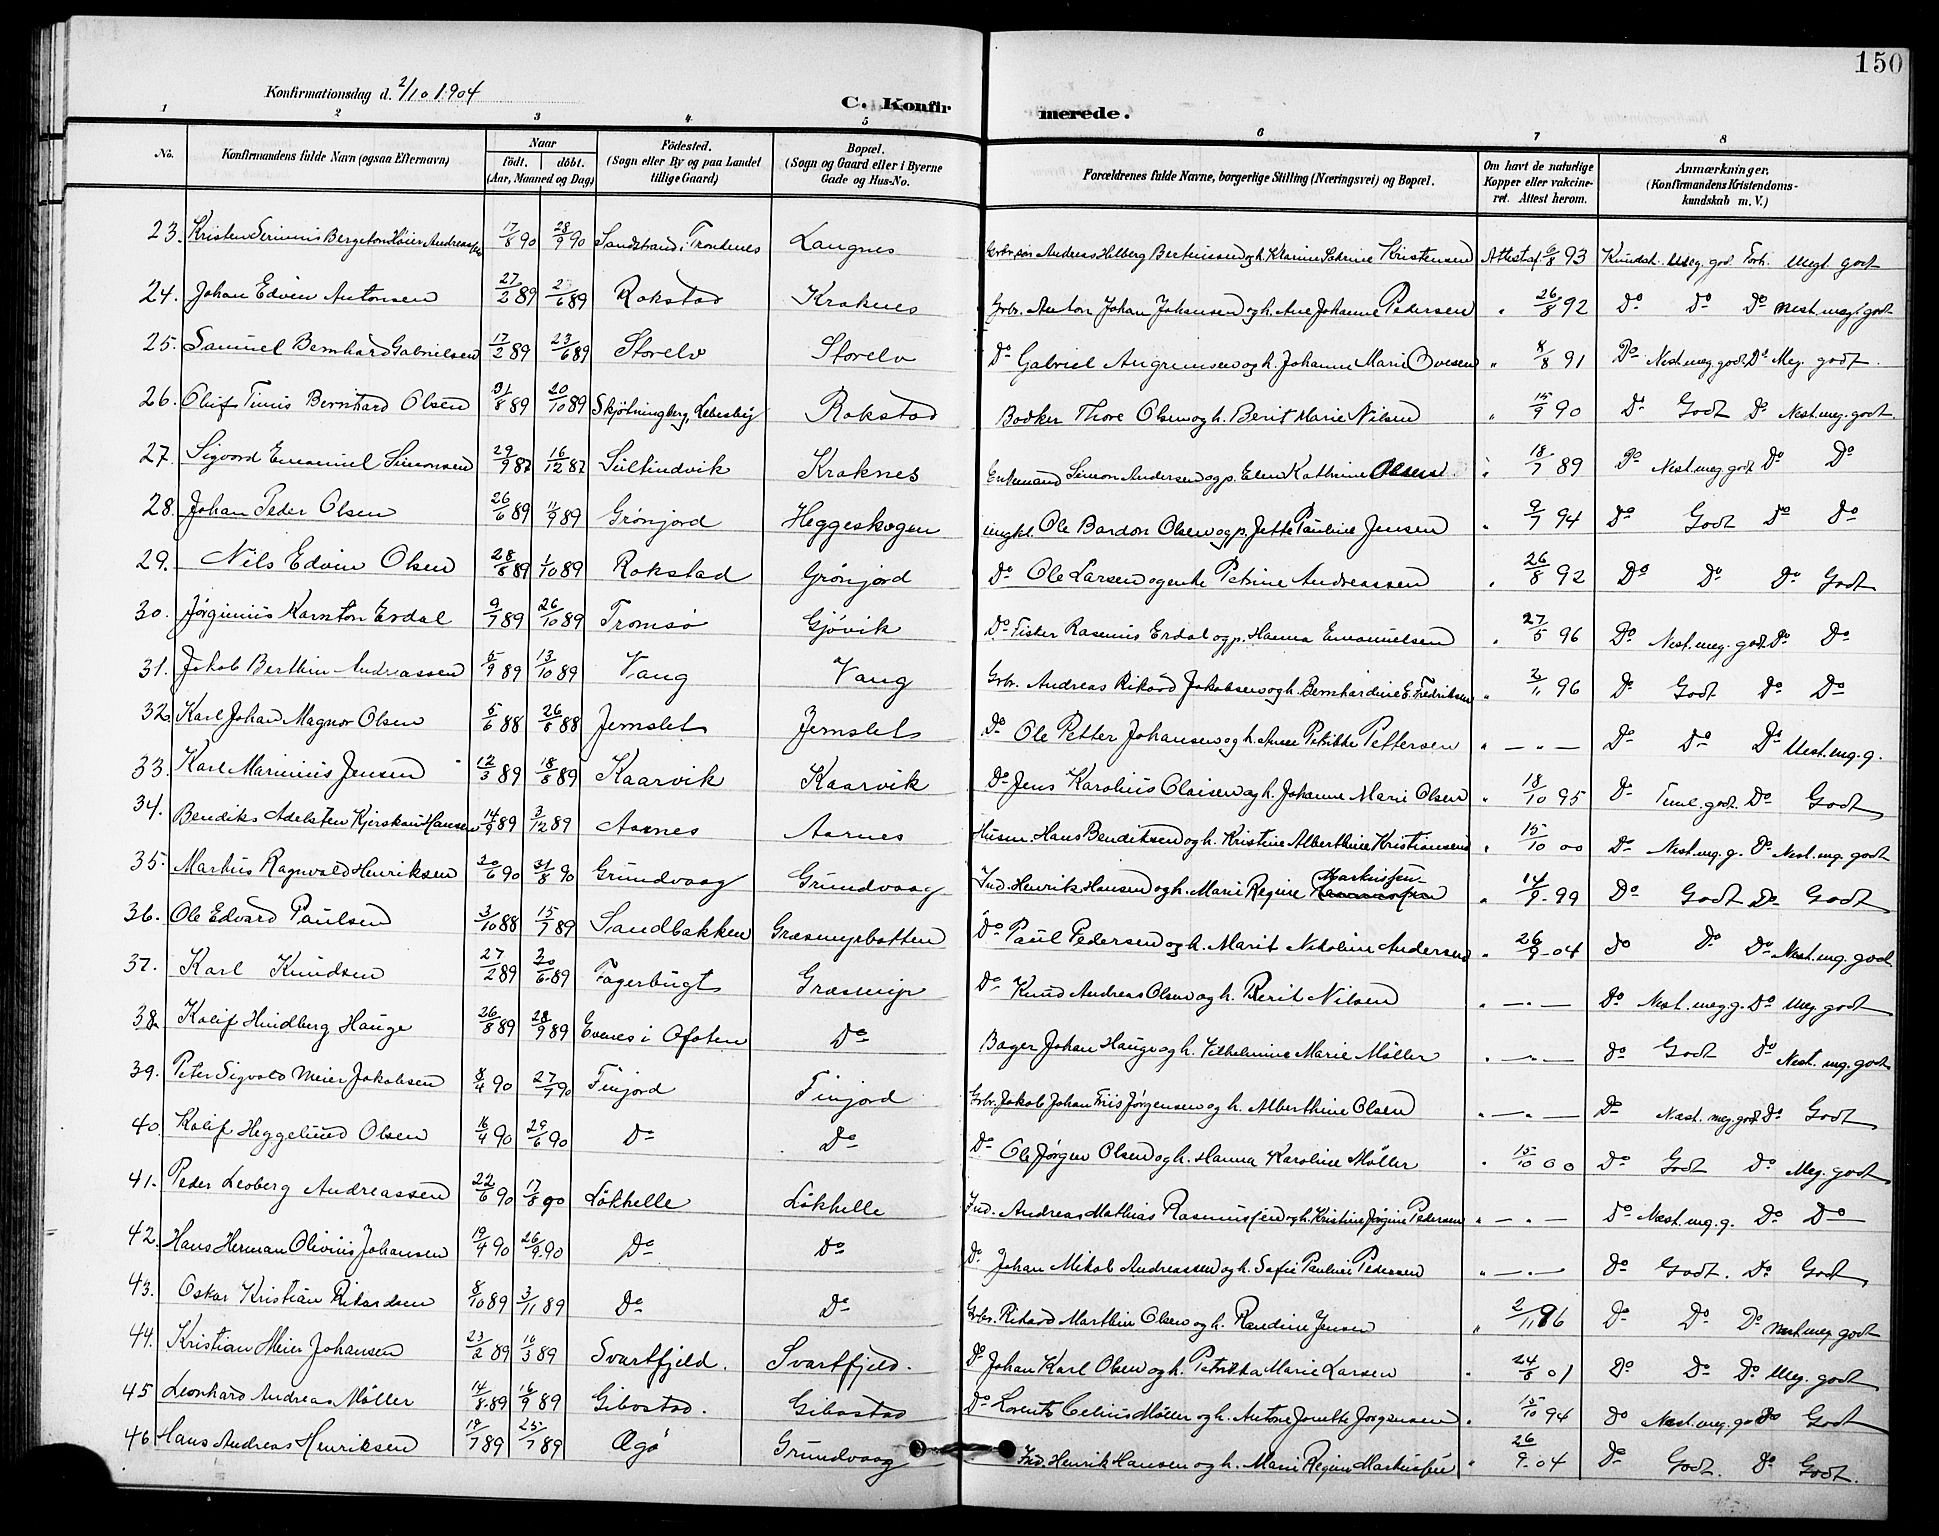 150
Konfirmationsdag d. 2/10 1904
C. Konfirmerede.
1 2 3 4 5 6 7 8
No. Konfirmandens fulde Navn (ogsaa Efternavn) Naar födt. döbt. (Aar, Maaned og Dag) Födested. (Sogn eller By og paa Landet tillige Gaard) Bopæl. (Sogn og Gaard eller i Byerne Gade og Hus-No. Forældrenes fulde Navne, borgerlige Stilling (Næringsvei) og Bopæl. Om havt de naturlige Kopper eller vakcineret. Attest herom. Anmærkninger. (Konfirmandens Kristendomskundskab m. V.)
23. Kristen 17/8 90 28/9 90 Sandstrand i Trondenes Langnes Andreas Hilberg Bertinussen og h. Klarine Petrine Kristensen Attest af 6/8 93 Kundsk. meg. god Forh. Megt. godt
24. Johan Edvin Antonsen 27/2 89 2/6 89 Rokstad Kraknes Grbr. Anton Johan Johansen og h. Ane Johanne Pedersen " 26/8 92 Do Do Do Nest. megt godt
25. Samuel Bernhard Gabrielsen 17/2 89 23/6 89 Storelv Storelv Do Gabriel Angrimsen og h. Johanne Marie Ovesen " 8/8 91 Do Nest. meg godt Do Meg. godt.
26. Oluf Tinus Bernhard Olsen 31/8 89 20/10 89 Skjötningberg, Lebesby Rokstad Bødker Thore Olsen og h. Berit Marie Nilsen " 15/9 90 Do Godt Do Nest. meg. godt
27. Sigvord Emanuel Simonsen 29/9 87 16/12 87 Sultindvik Kraknes Enkemand Simon Andersen og p. Elen Kathrine Olsen " 18/7 89 Do Nest. meg godt Do Do
28. Johan Peder Olsen 26/6 89 1/9 89 Grönjord Heggeskogen ungkl. Ole Bardon Olsen og p. Jette Pauline Jensen " 9/7 94 Do Godt Do Do
29. Nils Edvin Olsen 28/8 89 1/10 89 Rokstad Grönjord Do Ole Larsen og enke Petrine Andreassen " 26/8 92 Do Do Do Godt
30. Jørginius Karsten Erdal 9/7 89 26/10 89 Tromsö Gjövik Do Fisker Rasmus Erdal og p. Hanna Emanuelsen " 27/5 96 Do Nest. meg. godt Do Do
31. Jakob Berthin Andreassen 5/9 89 13/10 89 Vang Vang Grbr. Andreas Rikard Jakobsen og h. Bernhardine E. Fredriksen " 2/11 96 Do Godt Do Do
32. Karl Johan Magnor Olsen 5/6 88 26/8 88 Jernslet Jernslet Do Ole Petter Johansen og h. Anne Petrikke Pettersen " — " — Do Do Do Nest. mg. g.
33. Karl Marinius Jensen 12/3 89 18/8 89 Kaarvik Kaarvik Do Jens Karolius Olaisen og h. Johanne Marie Olsen " 18/10 95 Do Teml. godt. Do Godt
34. Bendiks Adelsten Hansen 14/9 89 3/12 89 Aarnes Aarnes Husm. Hans Bendiksen og h. Kristine Alberthine Kristiansen " 15/10 00 Do Nest. mg. g. Do Nest. mg. godt
35. Markus Ragnvald Henriksen 30/6 90 31/8 90 Grundvaag Grundvaag Ind. Henrik Hansen og h. Marie Regine Markussen " 14/9-99 Do Godt Do Godt
36. Ole Edvard Paulsen 3/10 88 15/7 89 Sandbakken Græsmyrbotten Do Paul Pedersen og h. Marit Nikoline Andersen " 26/9-04 Do Do Do Nest. mg. godt
37. Karl Knudsen 27/2 89 30/6 89 Fagerbugt Græsmyr Do Knud Andreas Olsen og h. Berit Nilsen " — " — Do Nest. meg g. Do Meg. godt
38. Kolif Hindberg Hauge 26/8 89 28/9 89 Evenes i Ofoten Do Bager Johan Hauge og h. Vilhelmine Marie Möller " — " — Do Godt Do Nest. mg. godt
39. Peter Sigvald Meier Jakobsen 8/4 90 27/7 90 Finjord Finjord Grbr. Jakob Johan Friis Jørgensen og h. Alberthine Olsen " — " — Do Næst. meg. godt Do Godt
40. Kolif Heggelund Olsen 16/4 90 29/6 90 Do Do Do Ole Jørgen Olsen og h. Hanna Karoline Möller " 15/10 00 Do Godt Do Meg. godt
41. Peder Leoberg Andreassen 22/6 90 17/8 90 Lökhelle Lökhelle Ind. Andreas Mathias Rasmussen og h. Kristine Jørgine Pedersen " — " — Do Næst. mg. g. Do Do
42. Hans Herman Olivius Johansen 19/4 90 26/9 90 Do Do Do Johan Mikal Andreassen og h. Sofie Pauline Pedersen " — " — Do Godt. Do Godt
43. Oskar Kristian Rikardsen 8/10 89 3/11 89 Do Do Grbr. Rikard Marthin Olsen og h. Randine Jensen " 2/11 96 Do Do Do Nest. meg godt
44. Kristian Meier Johansen 23/2 89 10/3 89 Svartfjeld. Svartfjeld. Do Johan Karl Olsen og h. Petrikka Marie Larsen " 24/8 01 Do Do Do Meg. godt
45 Leonhard Andreas Möller 14/8 89 16/9 89 Gibostad. Gibostad Do Lorents Celius Möller og h. Antone Jonette Jörgensen " 15/10 94 Do Nest. mg. godt Do Godt
46 Hans Andreas Henriksen 19/7 89 25/7 89 Øgö Grundvaag Ind. Henrik Hansen og h. Marie Regine Markussen " 26/9-04 Do Godt. Do Godt.